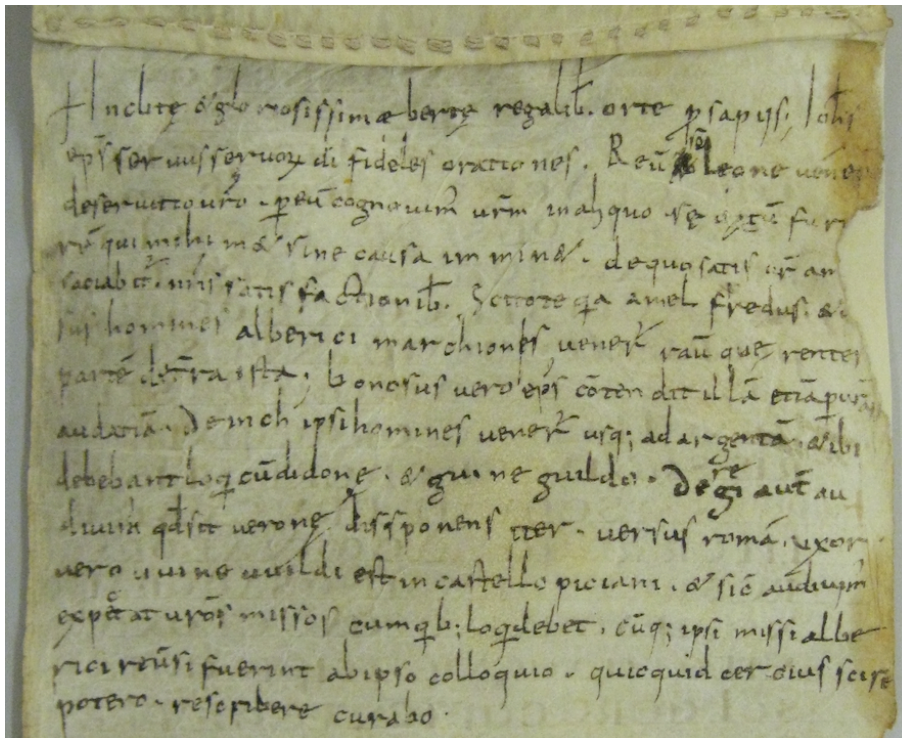 Inclitę & gloriosissimæ bertę regalib. orte ꝓsapijs, Ioħi
ep̄s servus servoꝝ dī fideles orationes. Reūse leone
deservitio vr̄o. ꝑ eū cognovim̄ vr̄m
qui mihi sine causa imminet. de quo satis
satisfactionib. Scitote qa amelfredus. &
sui homines alberici marchiones, vener̄ rau que,
partē de tr̄a ista; bonosus vero ep̄s cōtendit illā etiā
audatiā. Deinch ipsi homines vener̄ usq; ad argentā. & ibi
debebant loqi cū didone. & guine guildo. De rege aut̄ au
divim̄ qd sit verone, dissponens iter. versus romā. uxor
vero uuine uuildi est in castello piciani. & sic̄ audivim̄
expectat vr̄os missos cum qib; loqi debet. cūq; ipsi missi albe
rici reūsi fuerint ab ipso colloquio. quicquid certius scire
potero. rescribere curabo.